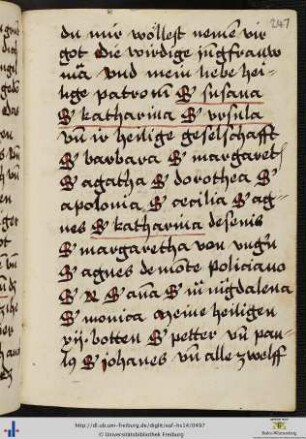 247
du mir wöllest nemen vir
got die wirdige jungfrauw
mia vnd mein liebe hei-
lige patronn S susana
S katharina S vrsula
vnn ir heilige geselschafft
S barbara S margareth
S agatha S dorothea S
apolonia S cecilia S ag-
nes S katharina desenis
S margaretha von vngern
S agnes de monte policiano
S S anna S m magdalena
S monica meine heiligen
xij botten S petter vnn pau-
lus S johanes vnn alle zwelff
http://dl.ub.uni-freiburg.de/diglit/oaf-hs14/0497
© Universitätsbibliothek Freiburg
Baden-Württemberg